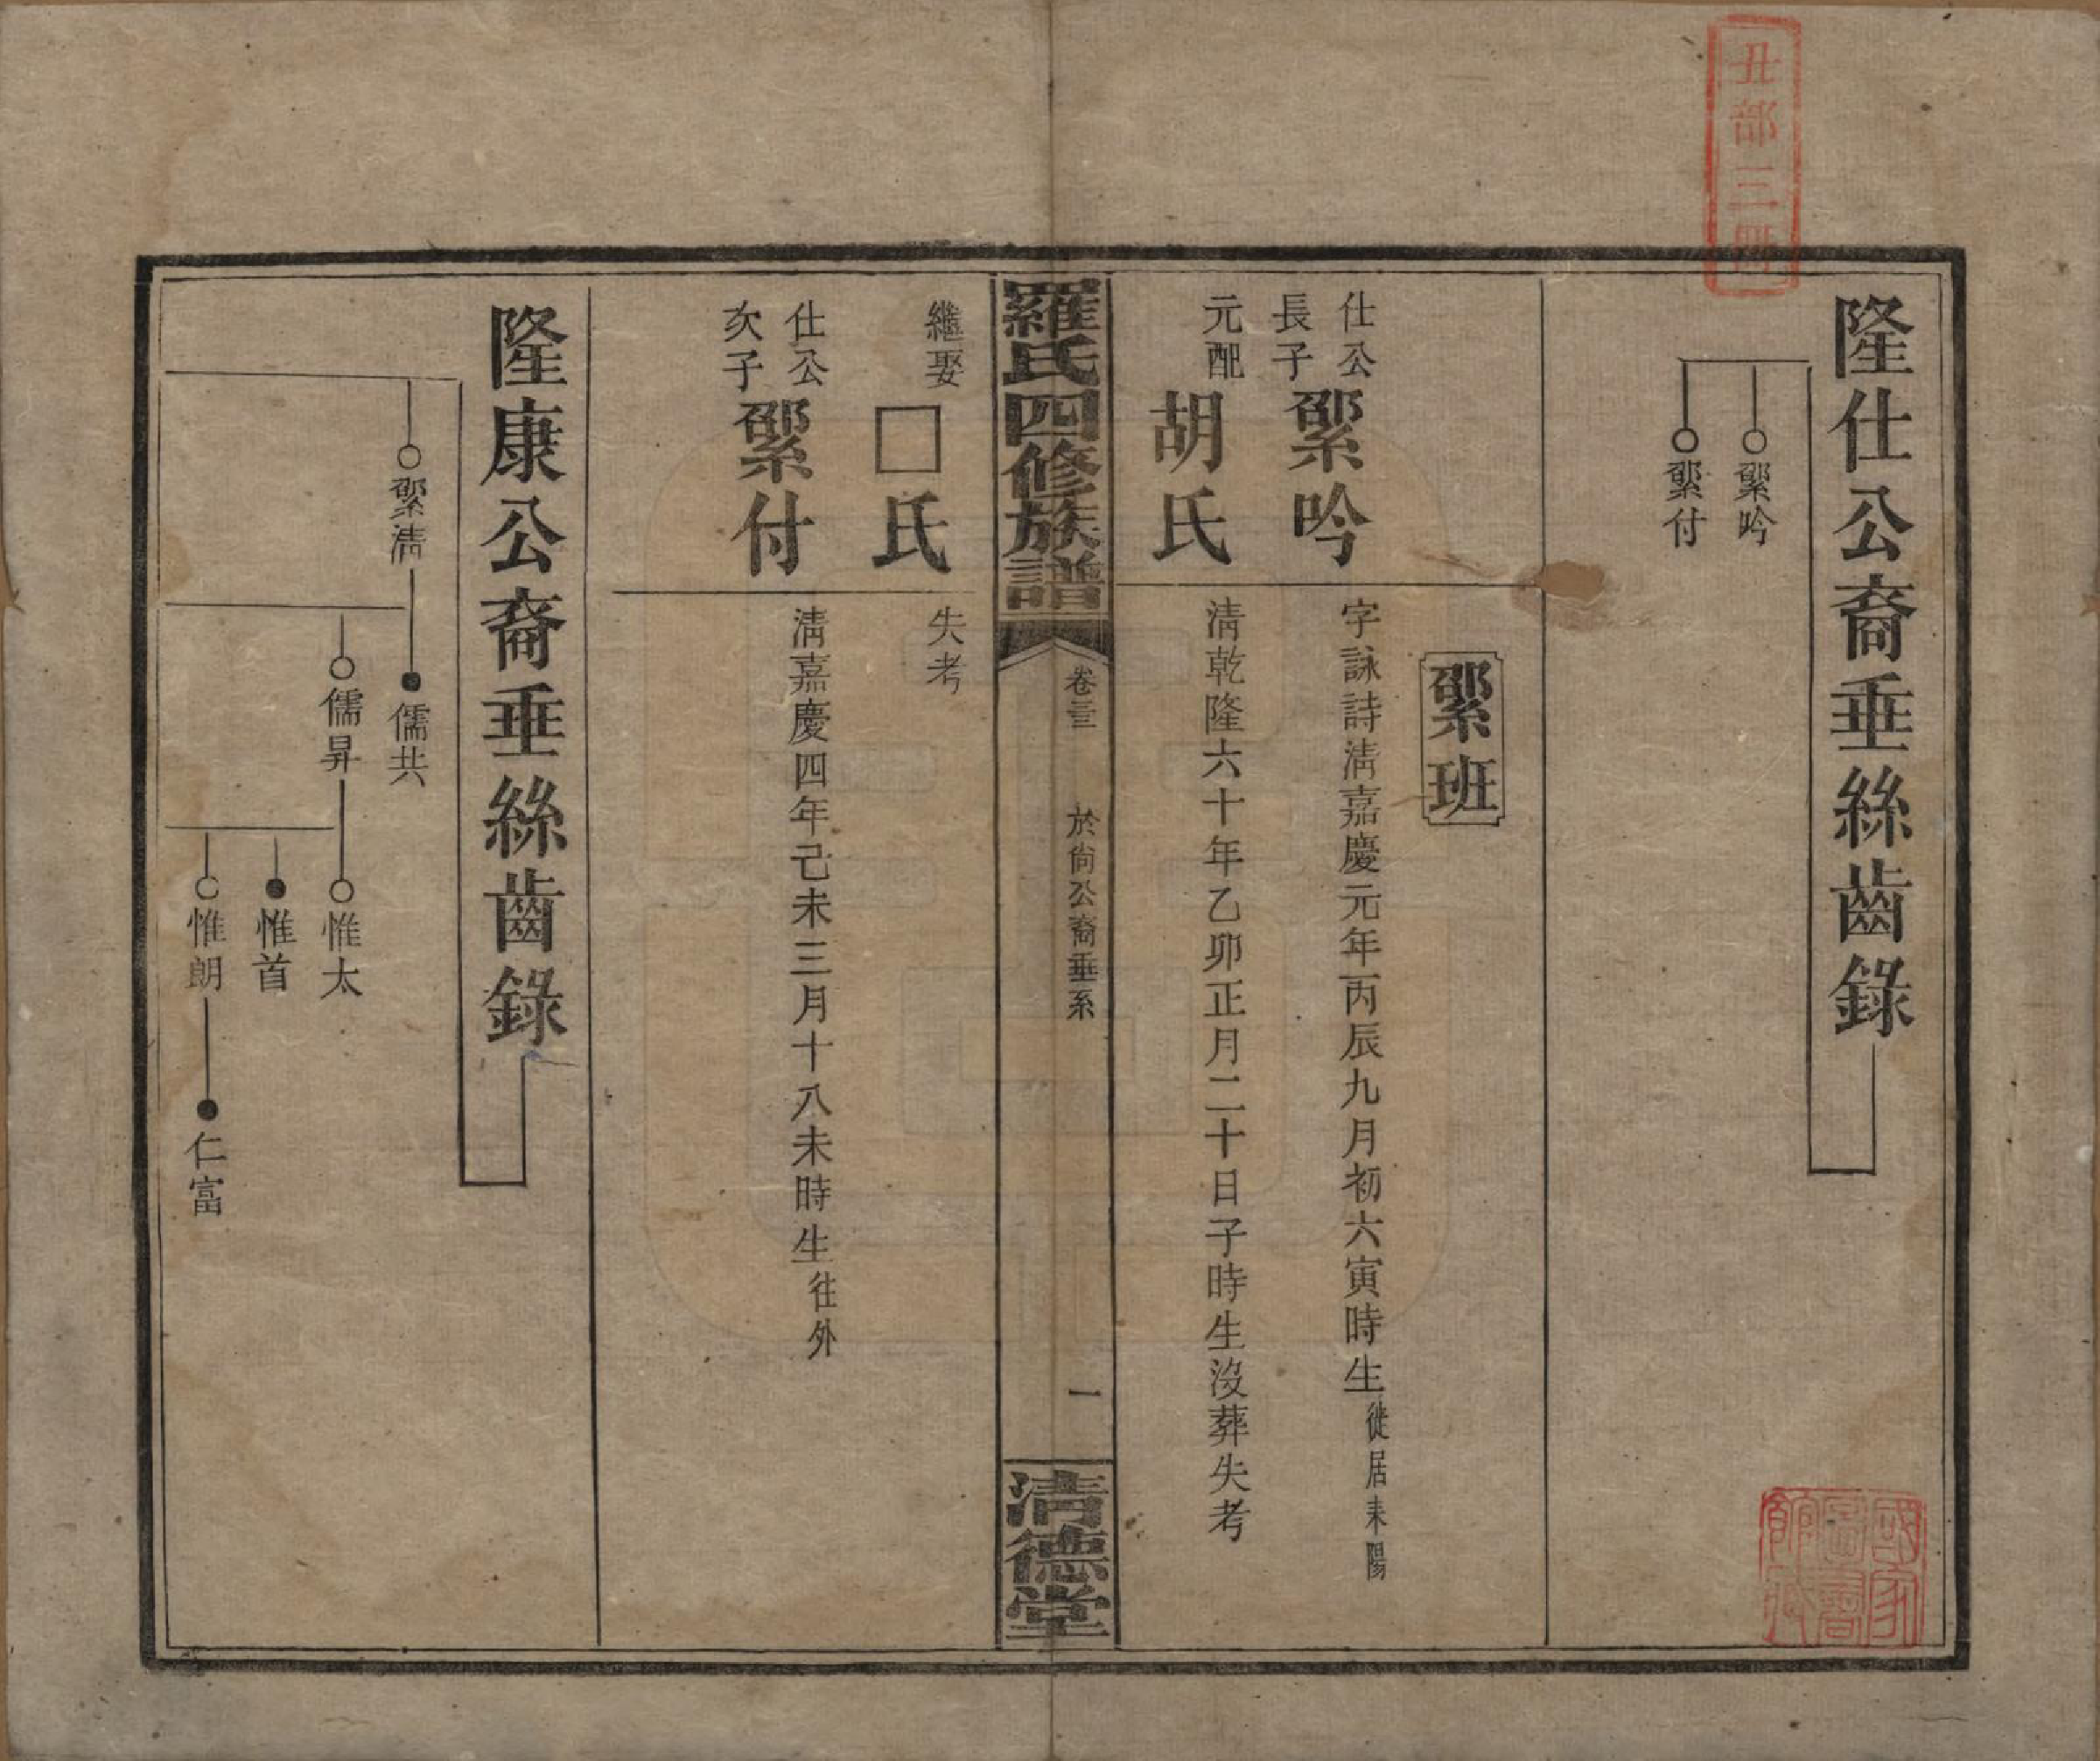 丑部三四
隆仕公裔垂絲齒錄
綤吟
綤付
綤班
仕公長子 綤吟 字詠詩淸嘉慶元年丙辰九月初六寅時生徙居耒陽
元配 胡氏 淸乾隆六十年乙卯正月二十日子時生沒葬失考
羅氏四修族譜 卷二三 於尙公裔垂系 一 淸德堂
繼娶 □氏 失考
仕公次子 綤付 淸嘉慶四年己未三月十八未時生往外
隆康公裔垂絲齒錄
綤淸 儒共
儒昇 惟太
惟首
惟朗 仁富
國家圖書館藏